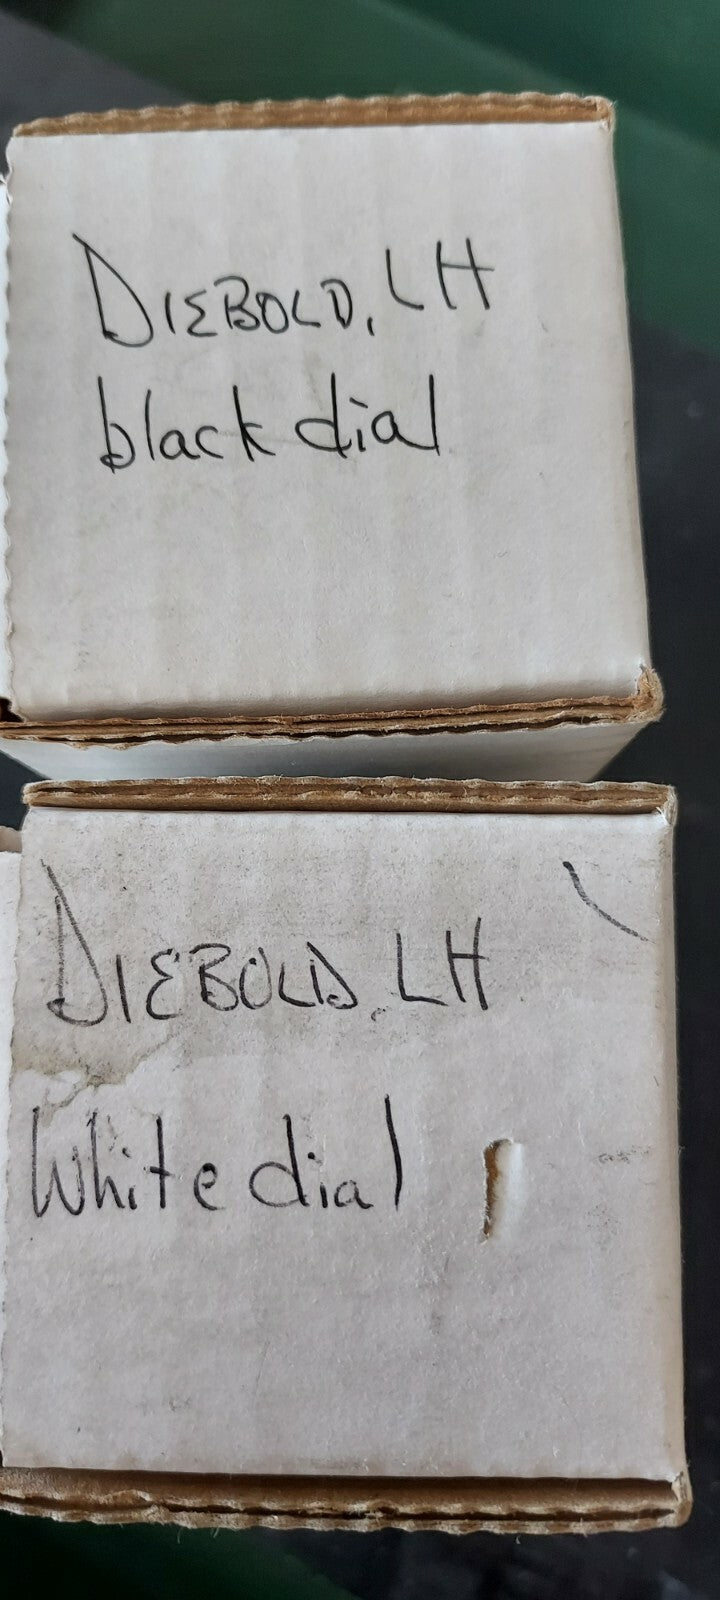 DIEBOLD, LH
black dial
DIEBOLD, LH
White dial